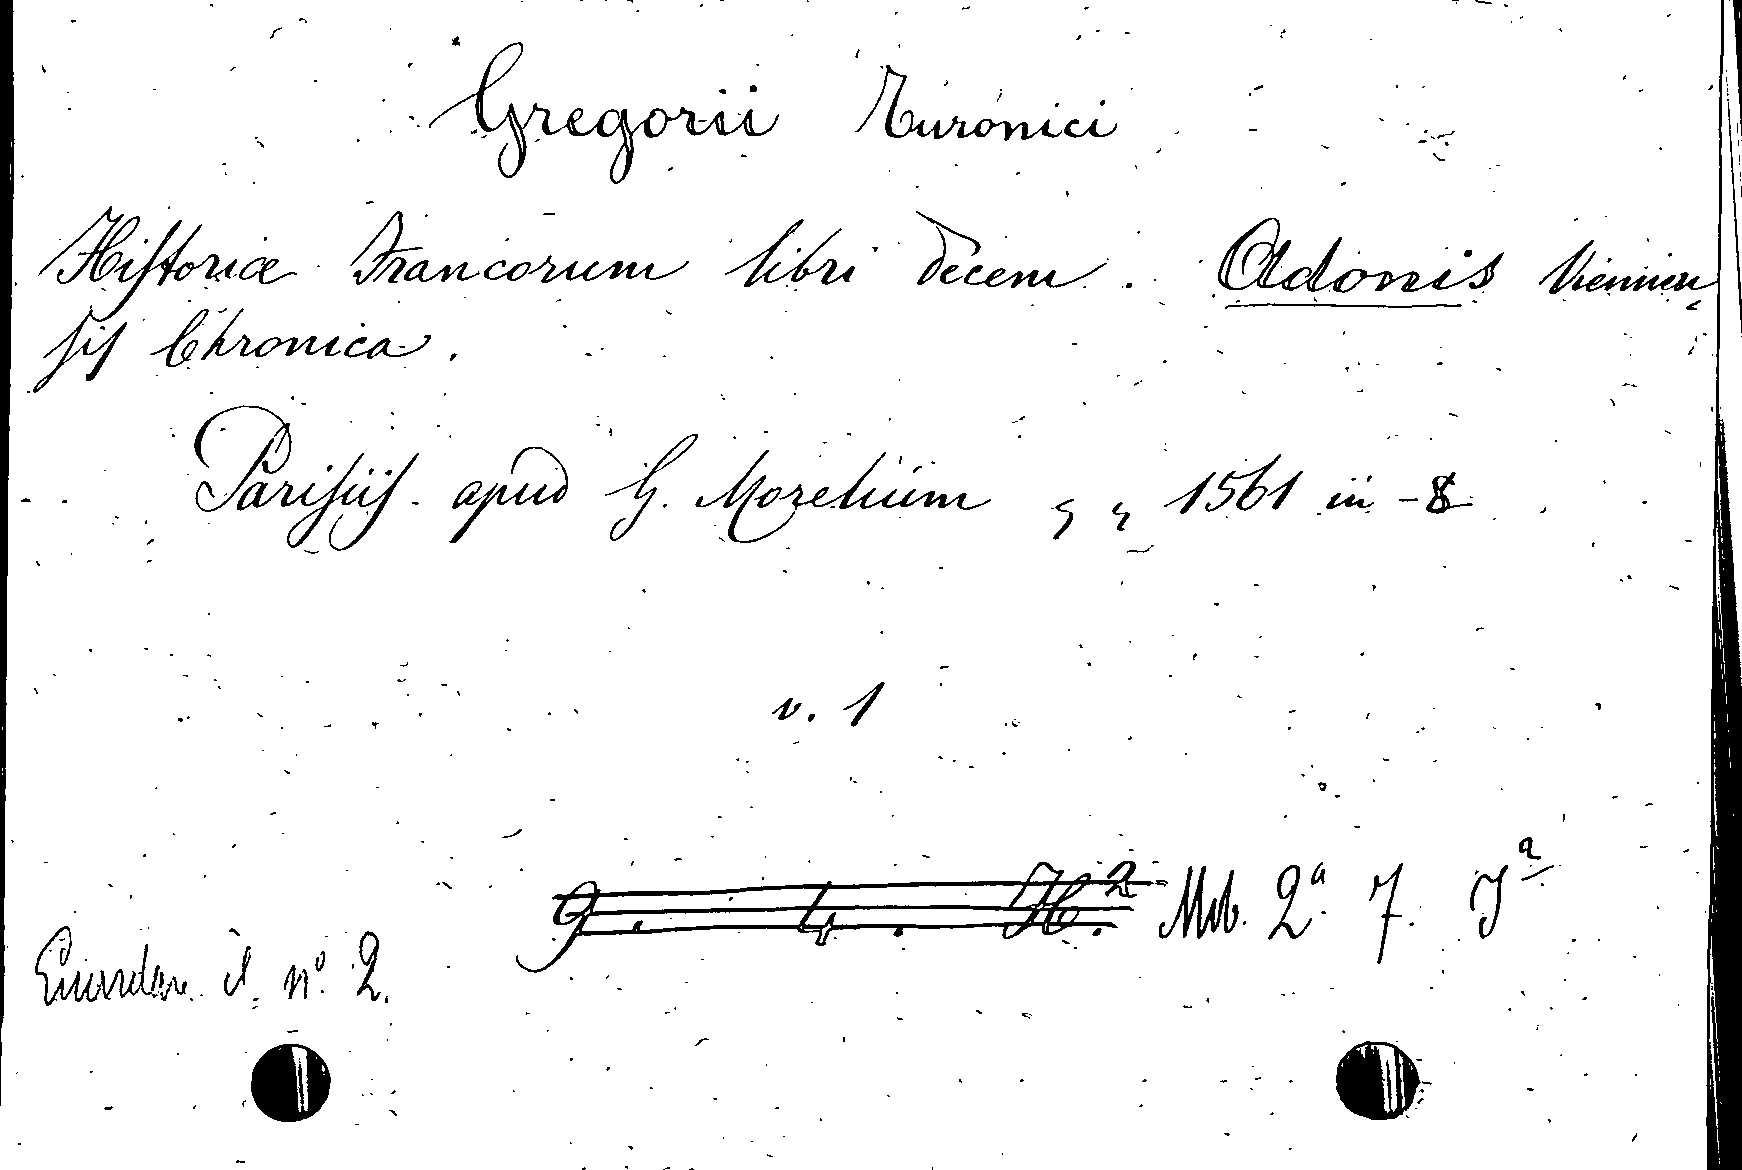 Gregorii Turonici
Historiæ Francorum libri decem. Adonis Viennen„
sis Chronica.
Parisiis apud G. Morelium „ „ 1561 in-8
v. 1
g. 4. H.² Mb. 2ª 7. Jª
il nº 2.